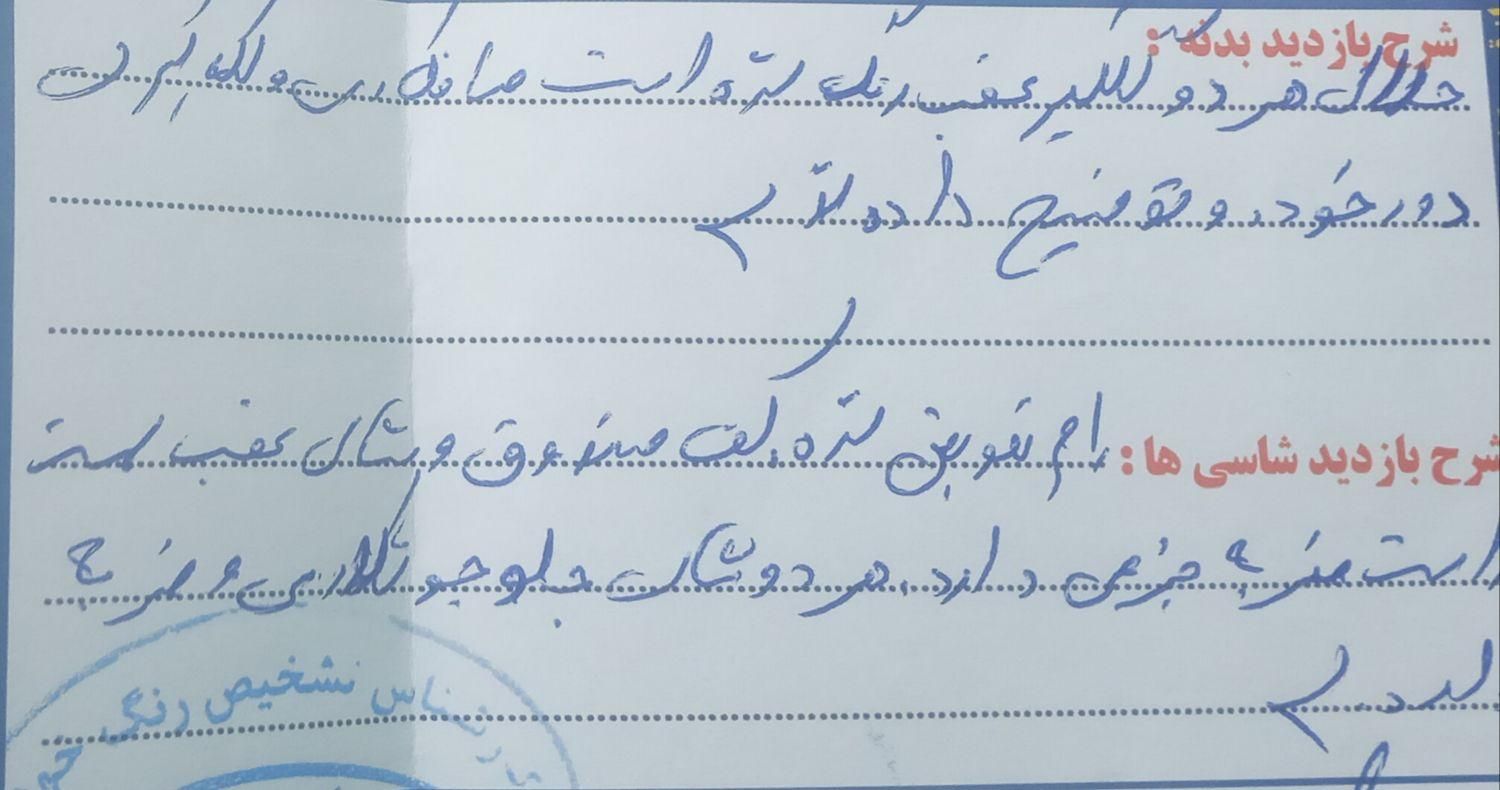 شرح بازدید بدنه :
هر دو گلگیر عقب رنگ شده است صافکاری و لکه گیری
دور خورده و توضیح داده شد
شرح بازدید شاسی ها : رام تعویض شده. کف صندوق و شاسی عقب سمت
راست ضربه جزعی دارد. هر دو شاسی جلو جوشکاری و ضربه
کارشناس تشخیص رنگ